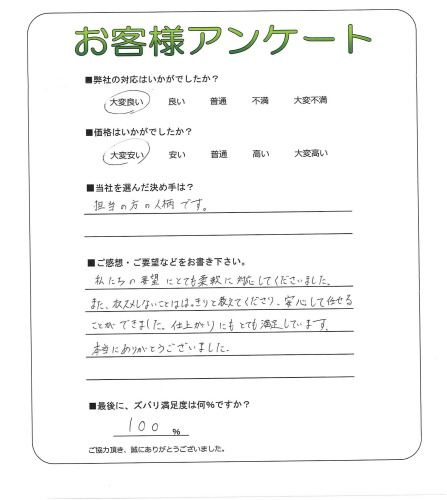 お客様アンケート
■弊社の対応はいかがでしたか？
大変良い 良い 普通 不満 大変不満
■価格はいかがでしたか？
大変安い 安い 普通 高い 大変高い
■当社を選んだ決め手は？
担当の方の人柄です。
■ご感想・ご要望などをお書き下さい。
私たちの要望にとても柔軟に対応してくださいました。
また、おススメしないことははっきりと教えてくださり、安心して任せる
ことができました。仕上がりにもとても満足しています。
本当にありがとうございました。
■最後に、ズバリ満足度は何%ですか？
100 %
ご協力頂き、誠にありがとうございました。